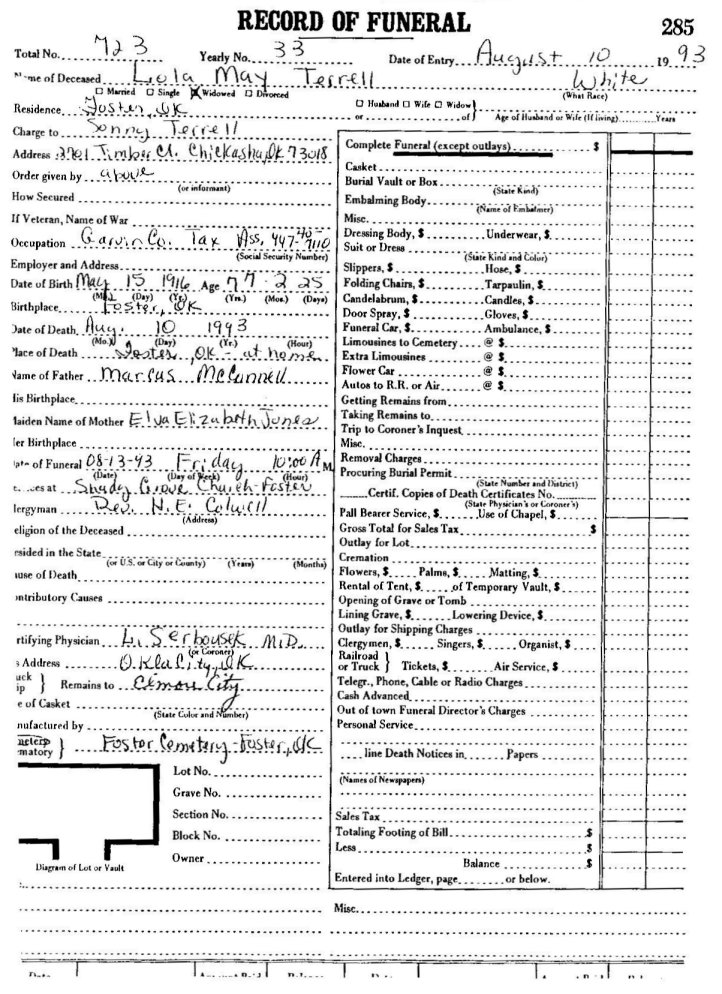 RECORD OF FUNERAL
285
Total No. 723 Yearly No. 33 Date of Entry August 10 1993
Name of Deceased Lola May Terrell White
☐ Married ☐ Single ☒ Widowed ☐ Divorced (What Race)
Residence Foster, OK ☐ Husband ☐ Wife ☐ Widow } or of } Age of Husband or Wife (If living) Years
Charge to Sonny Terrell
Address 2701 Timber Ct. Chickasha, Ok 73018
Order given by above
(or informant)
How Secured
If Veteran, Name of War
Occupation Garvin Co. Tax Ass. 447-40-7110
(Social Security Number)
Employer and Address
Date of Birth May 15 1916 Age 77 2 25
(Mo.) (Day) (Yr.) (Yrs.) (Mos.) (Days)
Birthplace Foster, OK
Date of Death Aug. 10 1993
(Mo.) (Day) (Yr.) (Hour)
Place of Death Foster, OK - at home
Name of Father Marcus McConnell
His Birthplace
Maiden Name of Mother Elva Elizabeth Jones
Her Birthplace
Date of Funeral 08-13-93 Friday 10:00 A M.
(Date) (Day of Week) (Hour)
Services at Shady Grove Church-Foster
Clergyman Rev. N. E. Colwell
(Address)
Religion of the Deceased
Resided in the State
(or U.S. or City or County) (Years) (Months)
Cause of Death
Contributory Causes
Certifying Physician L. Serbousek M.D.
(or Coroner)
His Address Okla City, OK
Remains to Elmore City
e of Casket
(State Color and Number)
Manufactured by
Foster Cemetery-Foster, OK
Lot No.
Grave No.
Section No.
Block No.
Owner
Diagram of Lot or Vault
Complete Funeral (except outlays) $
Casket
Burial Vault or Box
(State Kind)
Embalming Body
(Name of Embalmer)
Misc.
Dressing Body, $ Underwear, $
Suit or Dress
(State Kind and Color)
Slippers, $ Hose, $
Folding Chairs, $ Tarpaulin, $
Candelabrum, $ Candles, $
Door Spray, $ Gloves, $
Funeral Car, $ Ambulance, $
Limousines to Cemetery @ $
Extra Limousines @ $
Flower Car @ $
Autos to R.R. or Air @ $
Getting Remains from
Taking Remains to
Trip to Coroner's Inquest
Misc.
Removal Charges
Procuring Burial Permit
(State Number and District)
Certif. Copies of Death Certificates No.
(State Physician's or Coroner's)
Pall Bearer Service, $ Use of Chapel, $
Gross Total for Sales Tax $
Outlay for Lot
Cremation
Flowers, $ Palms, $ Matting, $
Rental of Tent, $ of Temporary Vault, $
Opening of Grave or Tomb
Lining Grave, $ Lowering Device, $
Outlay for Shipping Charges
Clergymen, $ Singers, $ Organist, $
Railroad or Truck } Tickets, $ Air Service, $
Telegr., Phone, Cable or Radio Charges
Cash Advanced
Out of town Funeral Director's Charges
Personal Service
line Death Notices in Papers
(Names of Newspapers)
Sales Tax
Totaling Footing of Bill $
Less $
Balance $
Entered into Ledger, page or below.
Misc.